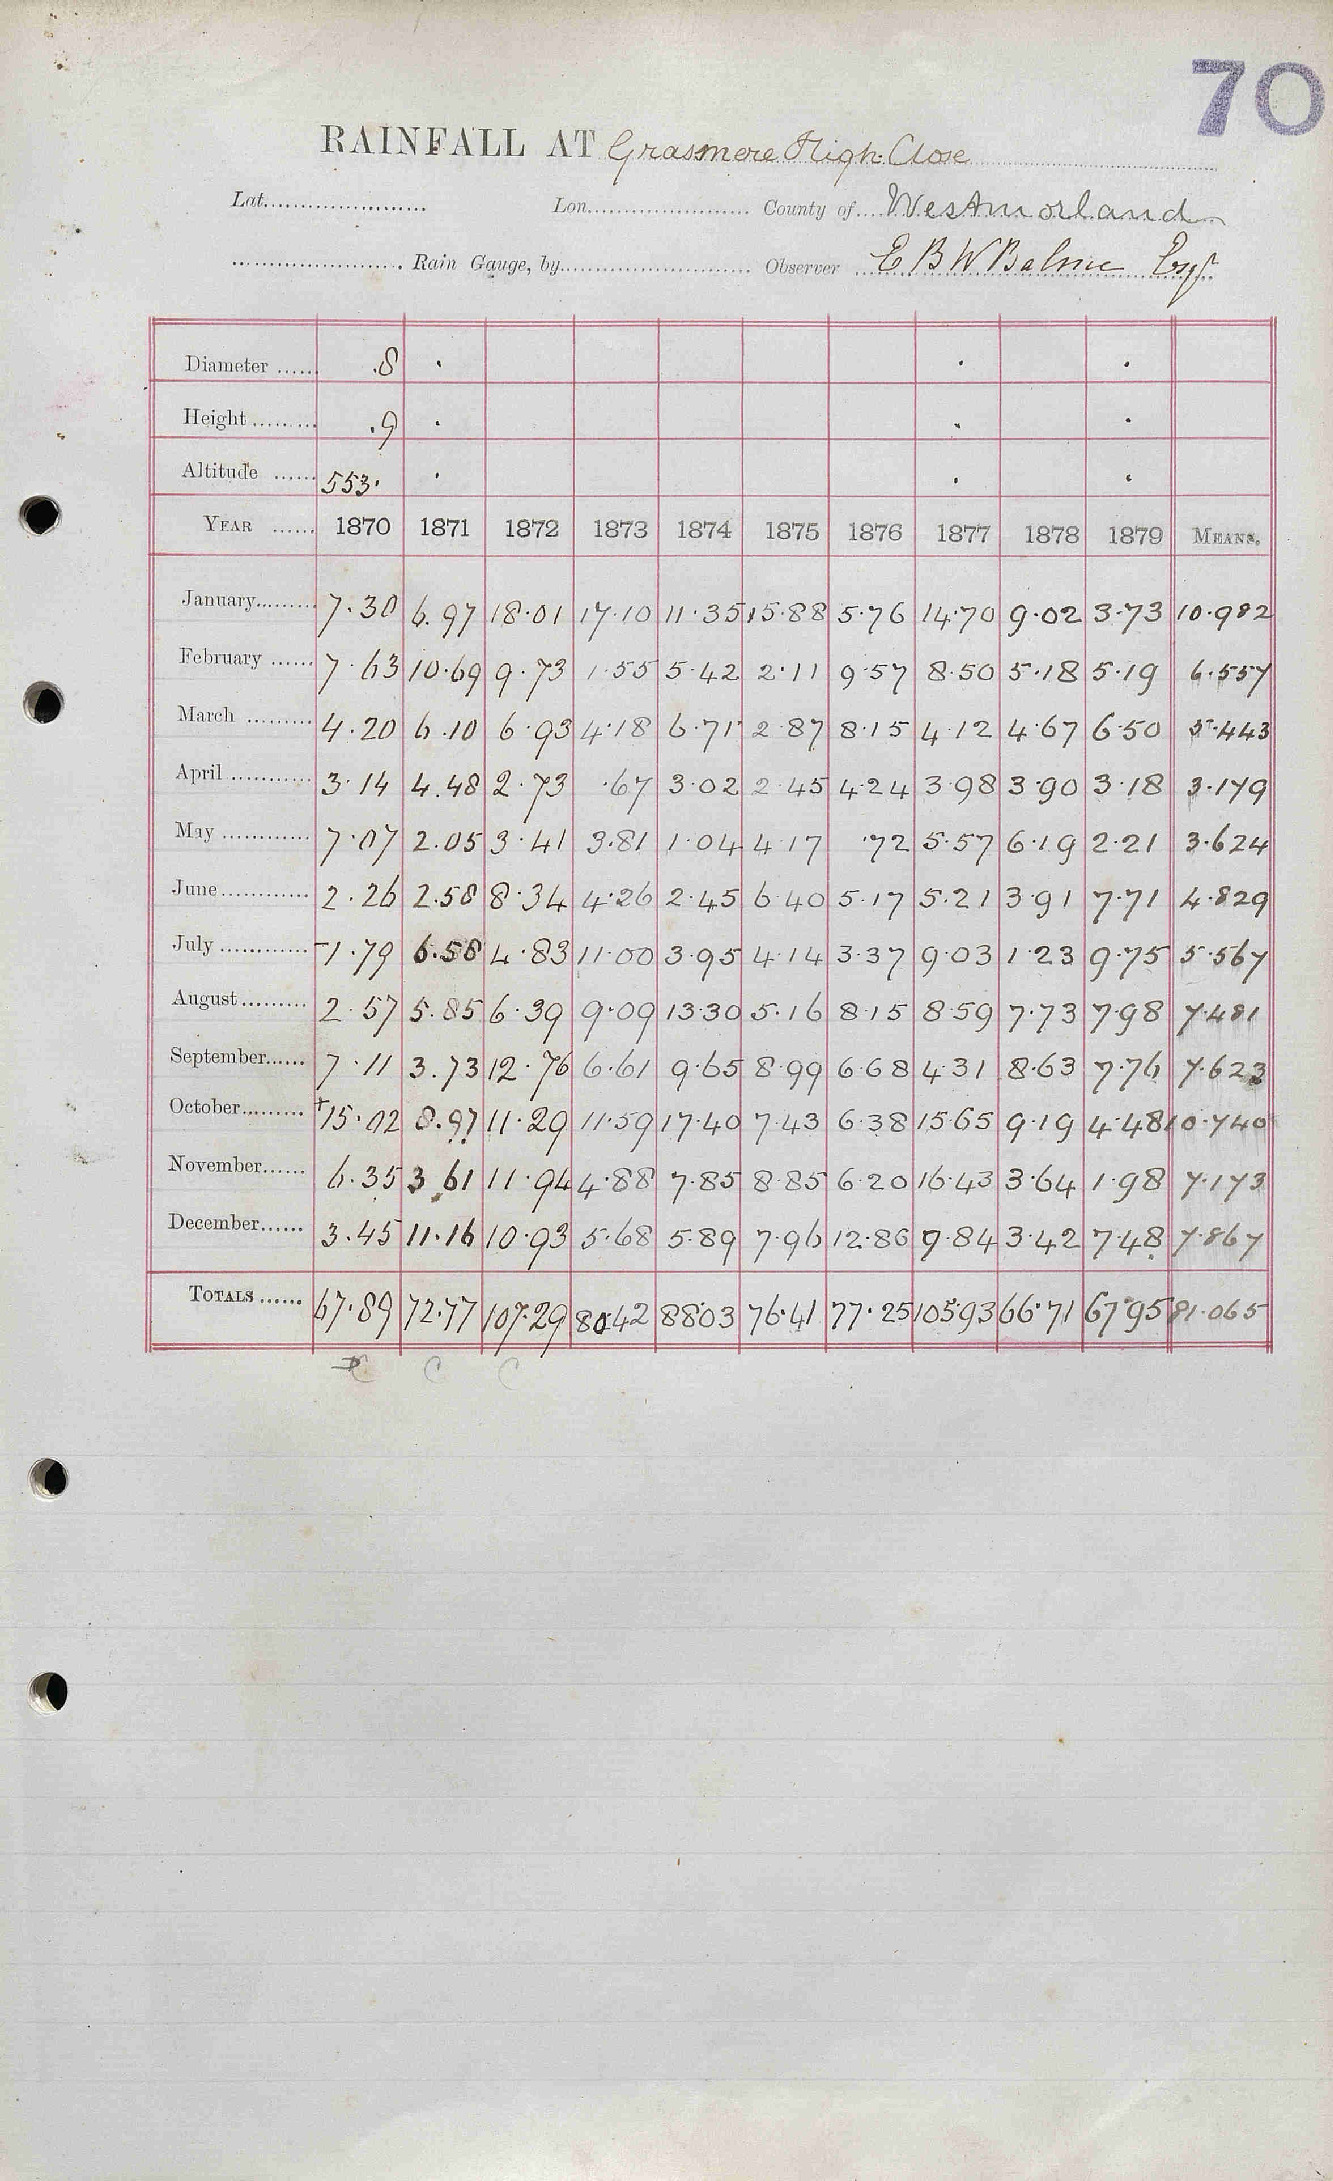 70
RAINFALL AT Grasmere High Close
Lat. Lon. County of Westmorland
Rain Gauge, by Observer E B W Balme Esqr
Diameter 8
Height 9
Altitude 553
YEAR 1870 1871 1872 1873 1874 1875 1876 1877 1878 1879 MEANS.
January 7.30 6.97 18.01 17.10 11.35 15.88 5.76 14.70 9.02 3.73 10.982
February 7.63 10.69 9.73 1.55 5.42 2.11 9.57 8.50 5.18 5.19 6.557
March 4.20 6.10 6.93 4.18 6.71 2.87 8.15 4.12 4.67 6.50 5.443
April 3.14 4.48 2.73 .67 3.02 2.45 4.24 3.98 3.90 3.18 3.179
May 7.07 2.05 3.41 3.81 1.04 4.17 .72 5.57 6.19 2.21 3.624
June 2.26 2.58 8.34 4.26 2.45 6.40 5.17 5.21 3.91 7.71 4.829
July -1.79 6.58 4.83 11.00 3.95 4.14 3.37 9.03 1.23 9.75 5.567
August 2.57 5.85 6.39 9.09 13.30 5.16 8.15 8.59 7.73 7.98 7.481
September 7.11 3.73 12.76 6.61 9.65 8.99 6.68 4.31 8.63 7.76 7.623
October +15.02 8.97 11.29 11.59 17.40 7.43 6.38 15.65 9.19 4.48 10.740
November 6.35 3.61 11.94 4.88 7.85 8.85 6.20 16.43 3.64 1.98 7.173
December 3.45 11.16 10.93 5.68 5.89 7.96 12.86 9.84 3.42 7.48 7.867
TOTALS 67.89 72.77 107.29 80.42 88.03 76.41 77.25 105.93 66.71 67.95 81.065
C C C